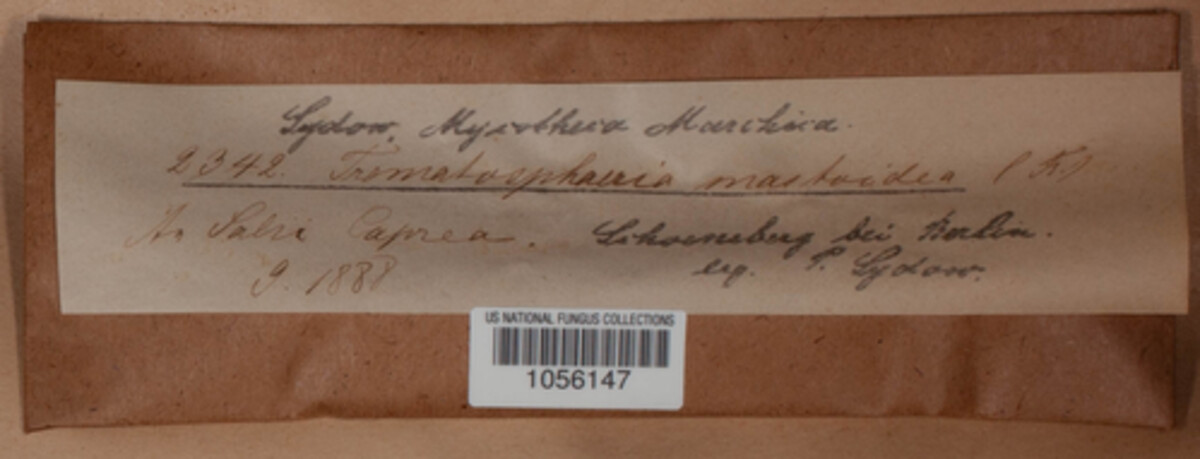 Sydow, Mycotheca Marchica.
2342. Trematosphaeria mastoidea (Fr.)
An Salix Caprea. Schoeneberg bei Berlin.
9. 1888 leg. P. Sydow.
US NATIONAL FUNGUS COLLECTIONS
1056147